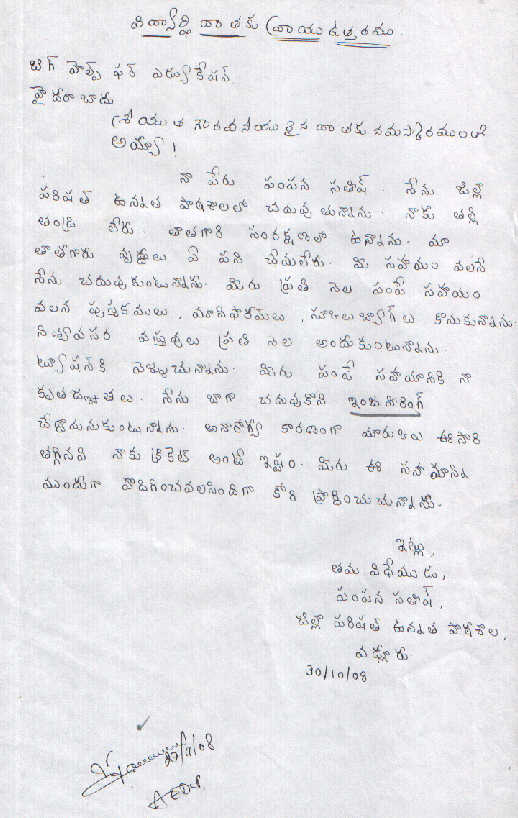 విద్యార్థి దాతకు వ్రాయు ఉత్తరము.
బిగ్ హెల్ప్ ఫర్ ఎడ్యుకేషన్
హైదరాబాదు
శ్రీయుత గౌరవనీయులైన దాతకు నమస్కరములతో
అయ్యా!
నా పేరు పంపన సతీష్. నేను జిల్లా
పరిషత్ ఉన్నత పాఠశాలలో చదువుతున్నాను. నాకు తల్లి
తండ్రి లేరు. తాతగారి సంరక్షణలో ఉన్నాను. మా
తాతగారు వృద్ధులు ఏ పని చేయలేరు. మీ సహాయం వలనే
నేను చదువుకుంటున్నాను. మీరు ప్రతి నెల పంపే సహాయం
వలన పుస్తకములు, స్కూలుబ్యాగ్ లు కొనుకున్నాను.
నిత్యావసర వస్తువులు ప్రతి నెల అందుకుంటున్నాను.
ట్యూషన్‌కి వెళ్ళుచున్నాను. మీరు పంపే సహాయానికి నా
కృతజ్ఞతలు. నేను బాగా చదువుకొని ఇంజనీరింగ్
చేద్దామనుకుంటున్నాను. అనారోగ్య కారణంగా మార్కులు ఈసారి
తగ్గినవి నాకు క్రికెట్ అంటే ఇష్టం. మీరు ఈ సహాయాన్ని
ముందుగా పొడిగించవలసిందిగా కోరి ప్రార్థించుచున్నాను.
ఇట్లు,
తమ విధేయుడు,
పంపన సతీష్,
జిల్లా పరిషత్ ఉన్నత పాఠశాల,
వడ్లూరు
30/10/08